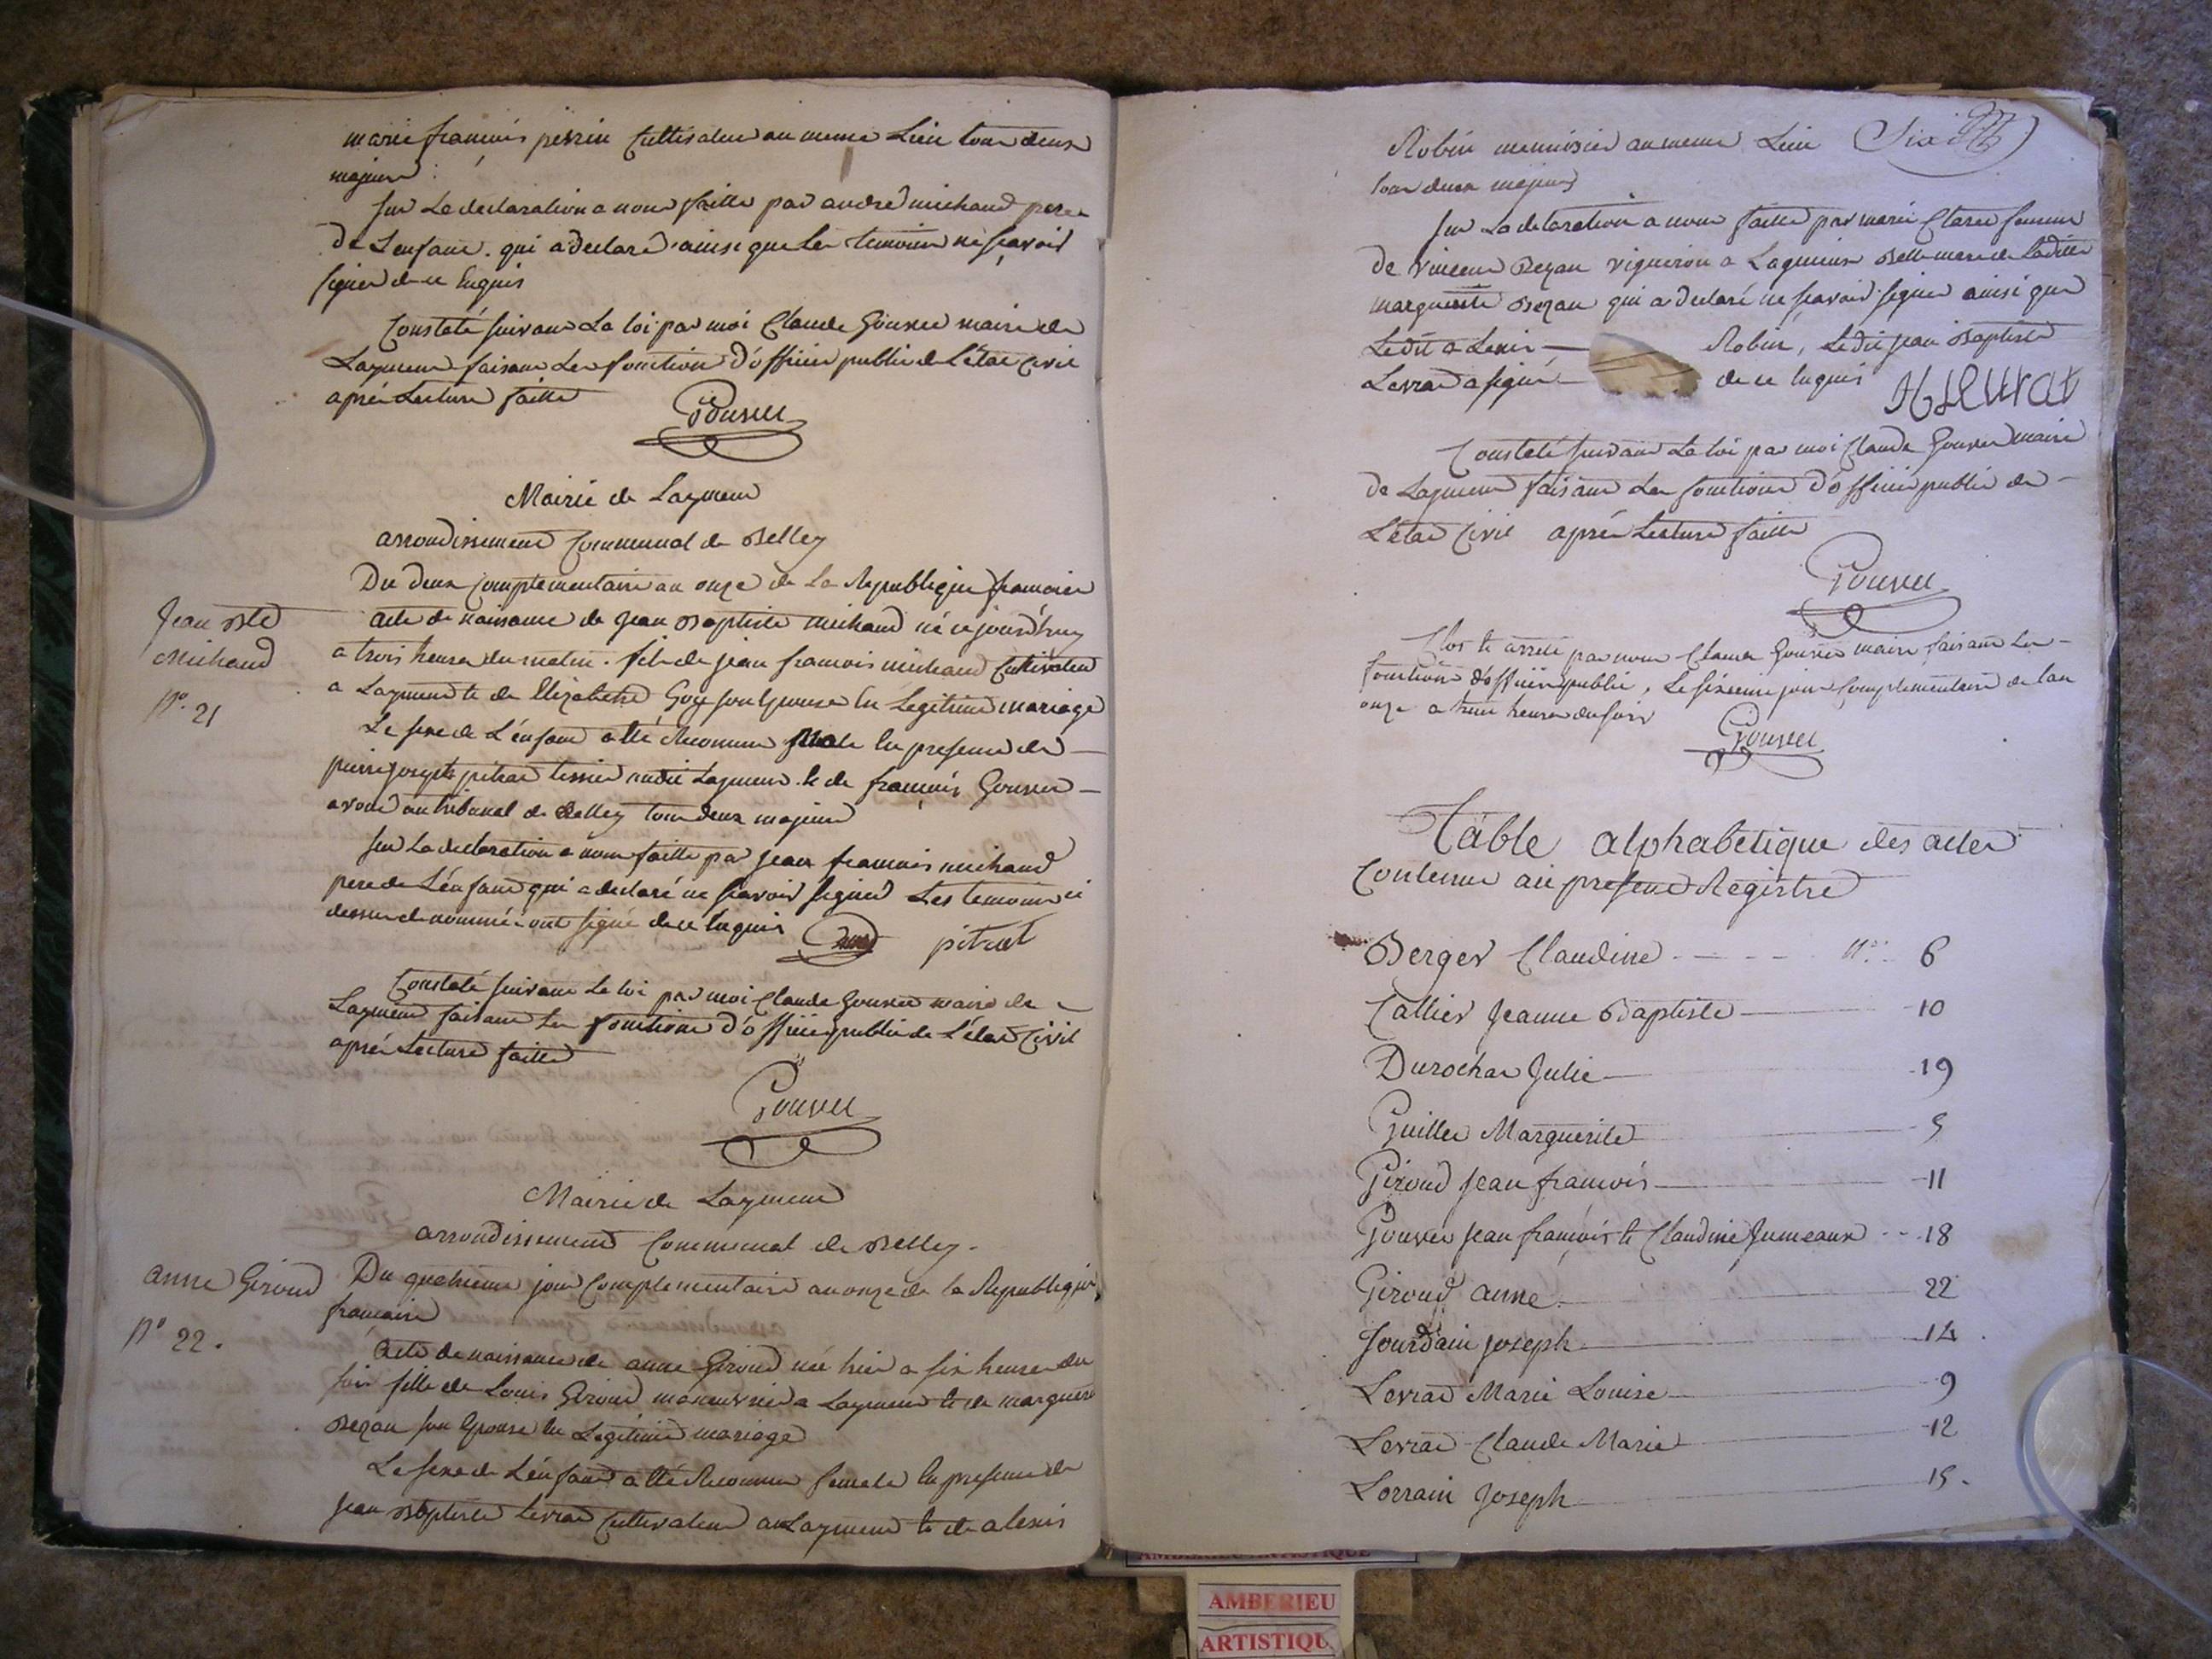 marie francois perrin Cultivateur au meme Lieu tous deux
majeurs
Sur La declaration a nous faitte par andré michaud pere
de L'enfant. qui a declaré ainsi que les temoins ne sçavoir
signer de ce Enquis
Constaté suivant La loi par moi Claude Gouvet maire de
Laymeur faisant Les fonction d'officier public de L'état Civil
aprés Lecture faitte
Gouvet
Mairie de Laymeur
arrondissement Communal de Belley
Du deux Complementaire an onze de La Republique francoise
Jean Bte
Michaud
N° 21
acte de naissance de Jean Baptiste Michaud né ce jourd'huy
a trois heures du matin. fils de jean francois michaud Cultivateur
a Laymeur et de Elizabeth Goy son Epouse En Legitime mariage
Le sexe de L'enfant a été Reconnu Male En presence de
pierre joseph pitrat tissier audit Laymeur et de francois Gouvet
avoué au tribunal de Belley tous deux majeurs
Sur La declaration a nous faitte par jean francois michaud
pere de L'enfant qui a declaré ne sçavoir signer Les temoins ci
dessus denommés ont signé de ce Enquis
pitrat
Constaté suivant La loi par moi Claude Gouvet maire de
Laymeur faisant Les fonctions d'officier public de L'état Civil
aprés Lecture faitte
Gouvet
Mairie de Laymeur
arrondissement Communal de Belley.
anne Giroud
N° 22.
Du quatrieme jour Complementaire an onze de la Republique
francaise
Acte de naissance de anne Giroud née hier a six heures du
soir fille de Louis Giroud manouvrier a Laymeur et de marguerite
Bezan son Epouse En Legitime mariage
Le sexe de L'enfant a été Reconnu femele En presence de
Jean Baptiste Levrat Cultivateur a Laymeur et de alexis
Robin menuisier au meme Lieu
Six
tous deux majeurs
Sur La declaration a nous faitte par marie Claree femme
de vincent Bezan vigneron a Lagnieux Belle mere de Laditte
marguerite Bezan qui a declaré ne sçavoir signer ainsi que
Ledit alexis Robin, Ledit jean Baptiste
Levrat a signé de ce Enquis
Levrat
Constaté suivant La loi par moi Claude Gouvet maire
de Laymeur faisant Les fonctions d'officier public de
L'état Civil aprés Lecture faitte
Gouvet
Clos et arreté par nous Claude Gouvet maire faisant Les
fonctions d'officier public, Le sixieme jour Complementaire de l'an
onze a heures du soir
Gouvet
Table alphabetique des actes
Contenus au present Registre
Berger Claudine N° 6
Callier Jeanne Baptiste 10
Durochat Julie 19
Guillet Marguerite 5
Giroud Jean francois 11
Gouvet Jean francois et Claudine Jumeaux 18
Giroud anne 22
Jourdain joseph 14
Levrat Marie Louise 9
Levrat Claude Marie 12
Lorrain Joseph 15.
AMBERIEU ARTISTIQUE
AMBERIEU
ARTISTIQU